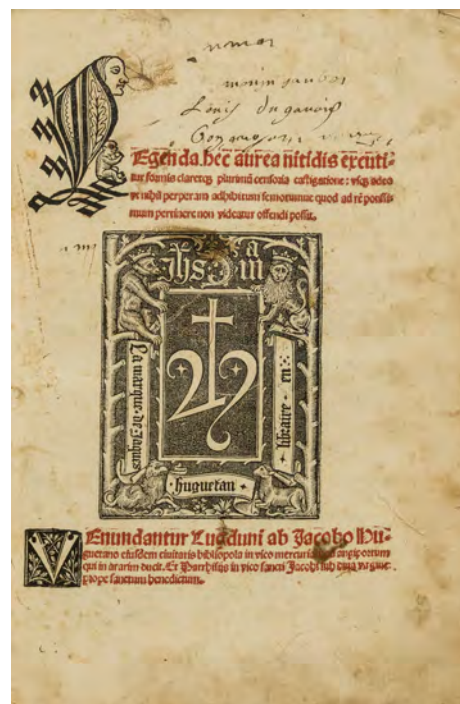 Louis du gauois
LEgenda. hec aurea nitidis excuti-
tur formis claretq; plurimū censoria castigatione: vsq; adeo
vt nihil perperam adhibitum semotumue quod ad rē potissi-
mum pertinere non videatur offendi possit.
Jhs ma
La marque de Jaques
libraire en
huguetan
VEnundantur Lugduni ab Jacobo Hu-
guetano eiusdem ciuitatis bibliopola in vico mercuriali angiportum
qui in ararim ducit. Et Parrhisijs in vico sancti Jacobi sub diua virgine
prope sanctum benedictum.